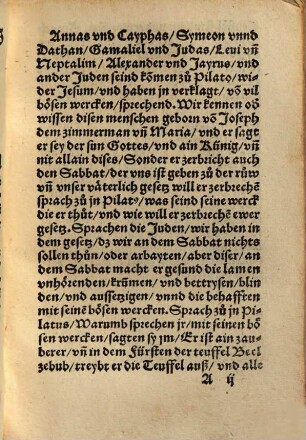 Annas vnd Cayphas/Symeon vnnd
Dathan/Gamaliel vnd Judas/Leui vñ
Neptalim/Alexander vnd Jayrus/vnd
ander Juden seind kōmen zů Pilato/wi-
der Jesum/vnd haben jn verklagt/vō vil
bösen wercken/sprechend. Wir kennen oď
wissen disen menschen geborn vō Joseph
dem zimerman vñ Maria/vnd er sagt
er sey der sun Gottes/vnd ain Künig/vñ
nit allain dises/Sonder er zerbricht auch
den Sabbat/der vns ist geben zů der růw
vñ vnser väterlich gesetz will er zerbrechē
sprach zů jn Pilatꝰ/was seind seine werck
die er thůt/vnd wie will er zerbrechē ewer
gesetz. Sprachen die Juden/wir haben in
dem gesetz/dz wir an dem Sabbat nichts
sollen thůn/oder arbayten/aber diser/an
dem Sabbat macht er gesund die lamen
vnhörenden/krūmen/vnd bettrysen/blin
den/vnd aussetzigen/vnnd die behafften
mit seinē bösen wercken. Sprach zů jn Pi-
latus/Warumb sprechen jr/mit seinen bō
sen wercken/sagten sy jm/Er ist ain zau-
berer/vñ in dem Fürsten der teuffel Beel
zebub/treybt er die Teuffel auß/vnd alle
A ij